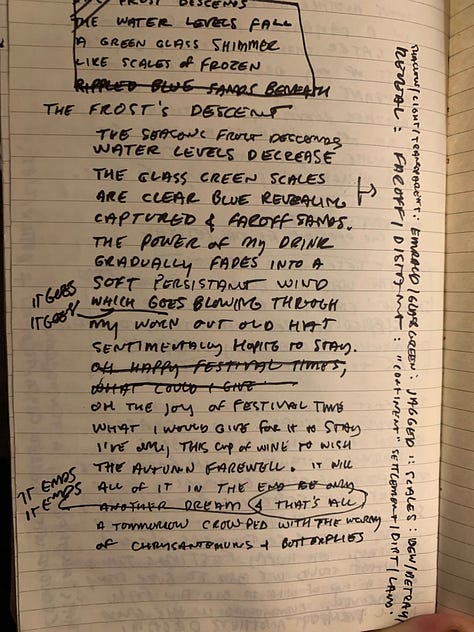 FROST DESCENDS
THE WATER LEVELS FALL
A GREEN GLASS SHIMMER
LIKE SCALES OF FROZEN
RIPPLED BLUE SANDS BENEATH
THE FROST'S DESCENT
THE SEASONS FROST DESCENDS
WATER LEVELS DECREASE
THE GLASS GREEN SCALES
ARE CLEAR BLUE REVEALING
CAPTURED & FAROFF SANDS.
THE POWER OF MY DRINK
GRADUALLY FADES INTO A
SOFT PERSISTANT WIND
IT GOES
WHICH GOES BLOWING THROUGH
IT GOES
MY WORN OUT OLD HAT
SENTIMENTALLY HOPING TO STAY.
OH HAPPY FESTIVAL TIMES,
WHAT COULD I GIVE
OH THE JOY OF FESTIVAL TIME
WHAT I WOULD GIVE FOR IT TO STAY
I'VE ONLY THIS CUP OF WINE TO WISH
THE AUTUMN FAREWELL. IT WILL
IT ENDS
ALL OF IT IN THE END BE ONLY
IT ENDS
ANOTHER DREAM & THAT'S ALL
A TOMMORROW CROWDED WITH THE WORRY
OF CHRYSANTEMUMS & BUTTERFLIES
SHALLOW/LIGHT/TRANSPARENT: EMERALD/GLASS GREEN: JAGGED :: SCALES: DEW/BETRAY/
REVEAL: FAROFF/DISTANT: "CONTINENT" SETTLEMENT/DIRT/LAND.